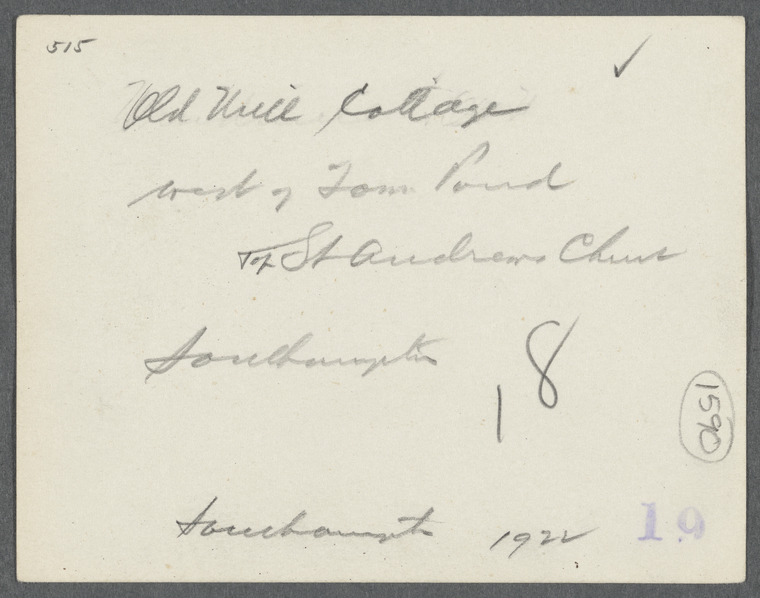 515
Old Mill Cottage
west of Town Pond
St Andrews Church
Southampton
18
1590
Southampton 1922
19